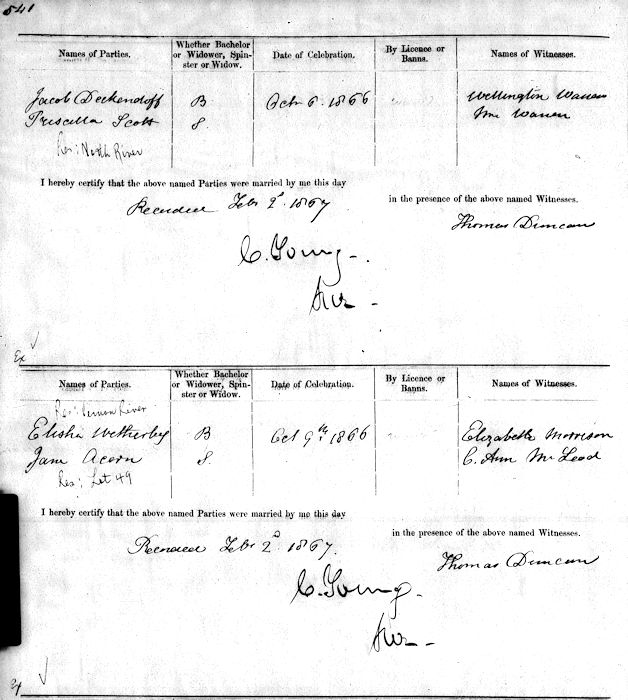 541
Names of Parties. Whether Bachelor or Widower, Spinster or Widow. Date of Celebration. By Licence or Banns. Names of Witnesses.
Jacob Deckendoff B Octr 6. 1866 Wellington Warren
Priscilla Scott S. Mrs Warren
Res: North River
I hereby certify that the above named Parties were married by me this day
in the presence of the above named Witnesses.
Recorded Feby 2d. 1867
Thomas Duncan
C. Young -
Ex
Names of Parties. Whether Bachelor or Widower, Spinster or Widow. Date of Celebration. By Licence or Banns. Names of Witnesses.
Res: Vernon River
Elisha Wetherby B Oct 9th 1866 Elizabeth Morrison
Jane Acorn S C. Ann McLeod
Res: Lot 49
I hereby certify that the above named Parties were married by me this day
in the presence of the above named Witnesses.
Recorded Feby 2d 1867.
Thomas Duncan
C. Young -